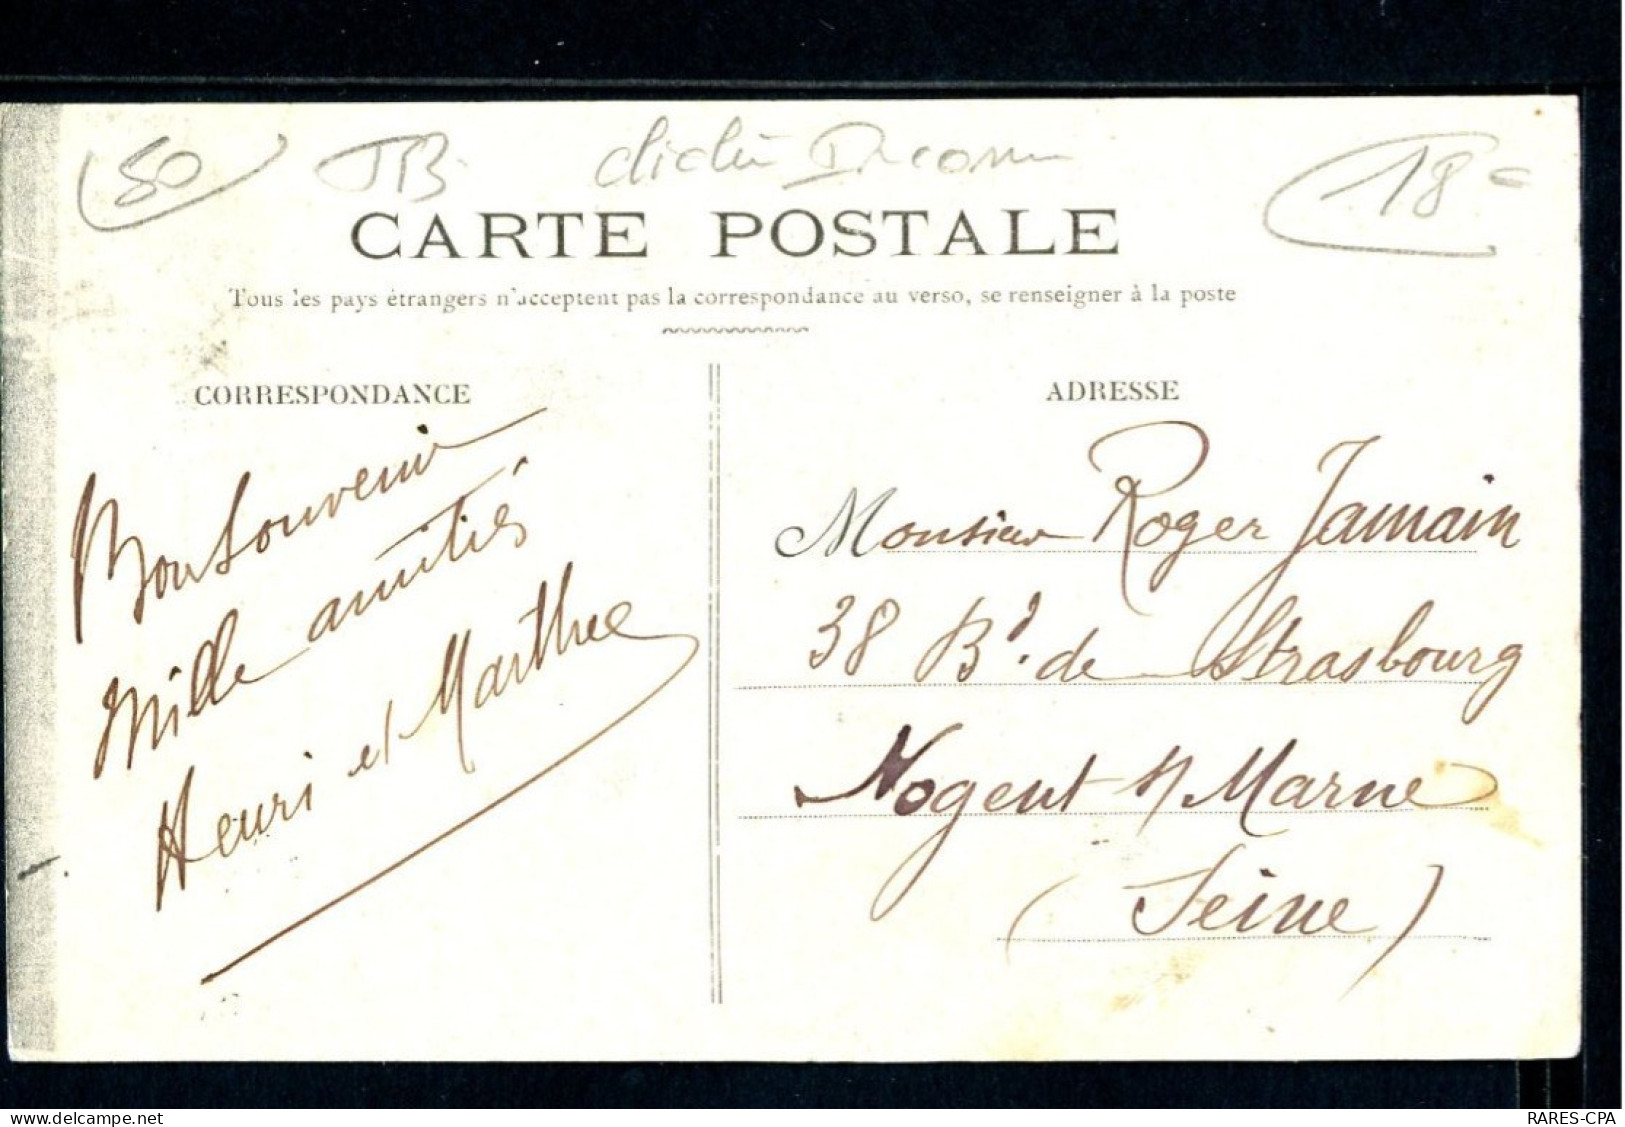 50 JB cliché 18-
CARTE POSTALE
Tous les pays étrangers n'acceptent pas la correspondance au verso, se renseigner à la poste
CORRESPONDANCE
Bon Souvenir
Mille amitiés
Henri et Marthe
ADRESSE
Monsieur Roger Jamain
38 Bd. de Strasbourg
Nogent s/ Marne
(Seine)
www.delcampe.net
RARES-CPA